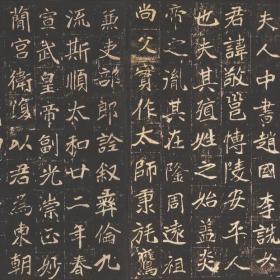 夫人中書趙國李詵女
君諱敬邕博陵安平人
也夫其殖姓之始蓋炎
帝之胤其在隆周遠祖
尚父實作太師秉旄鷹
兼吏部郎詮叙彝倫九
流斯順太和廿二年春
宣武皇帝副光崇正妙
簡宮衛復以君為東朝